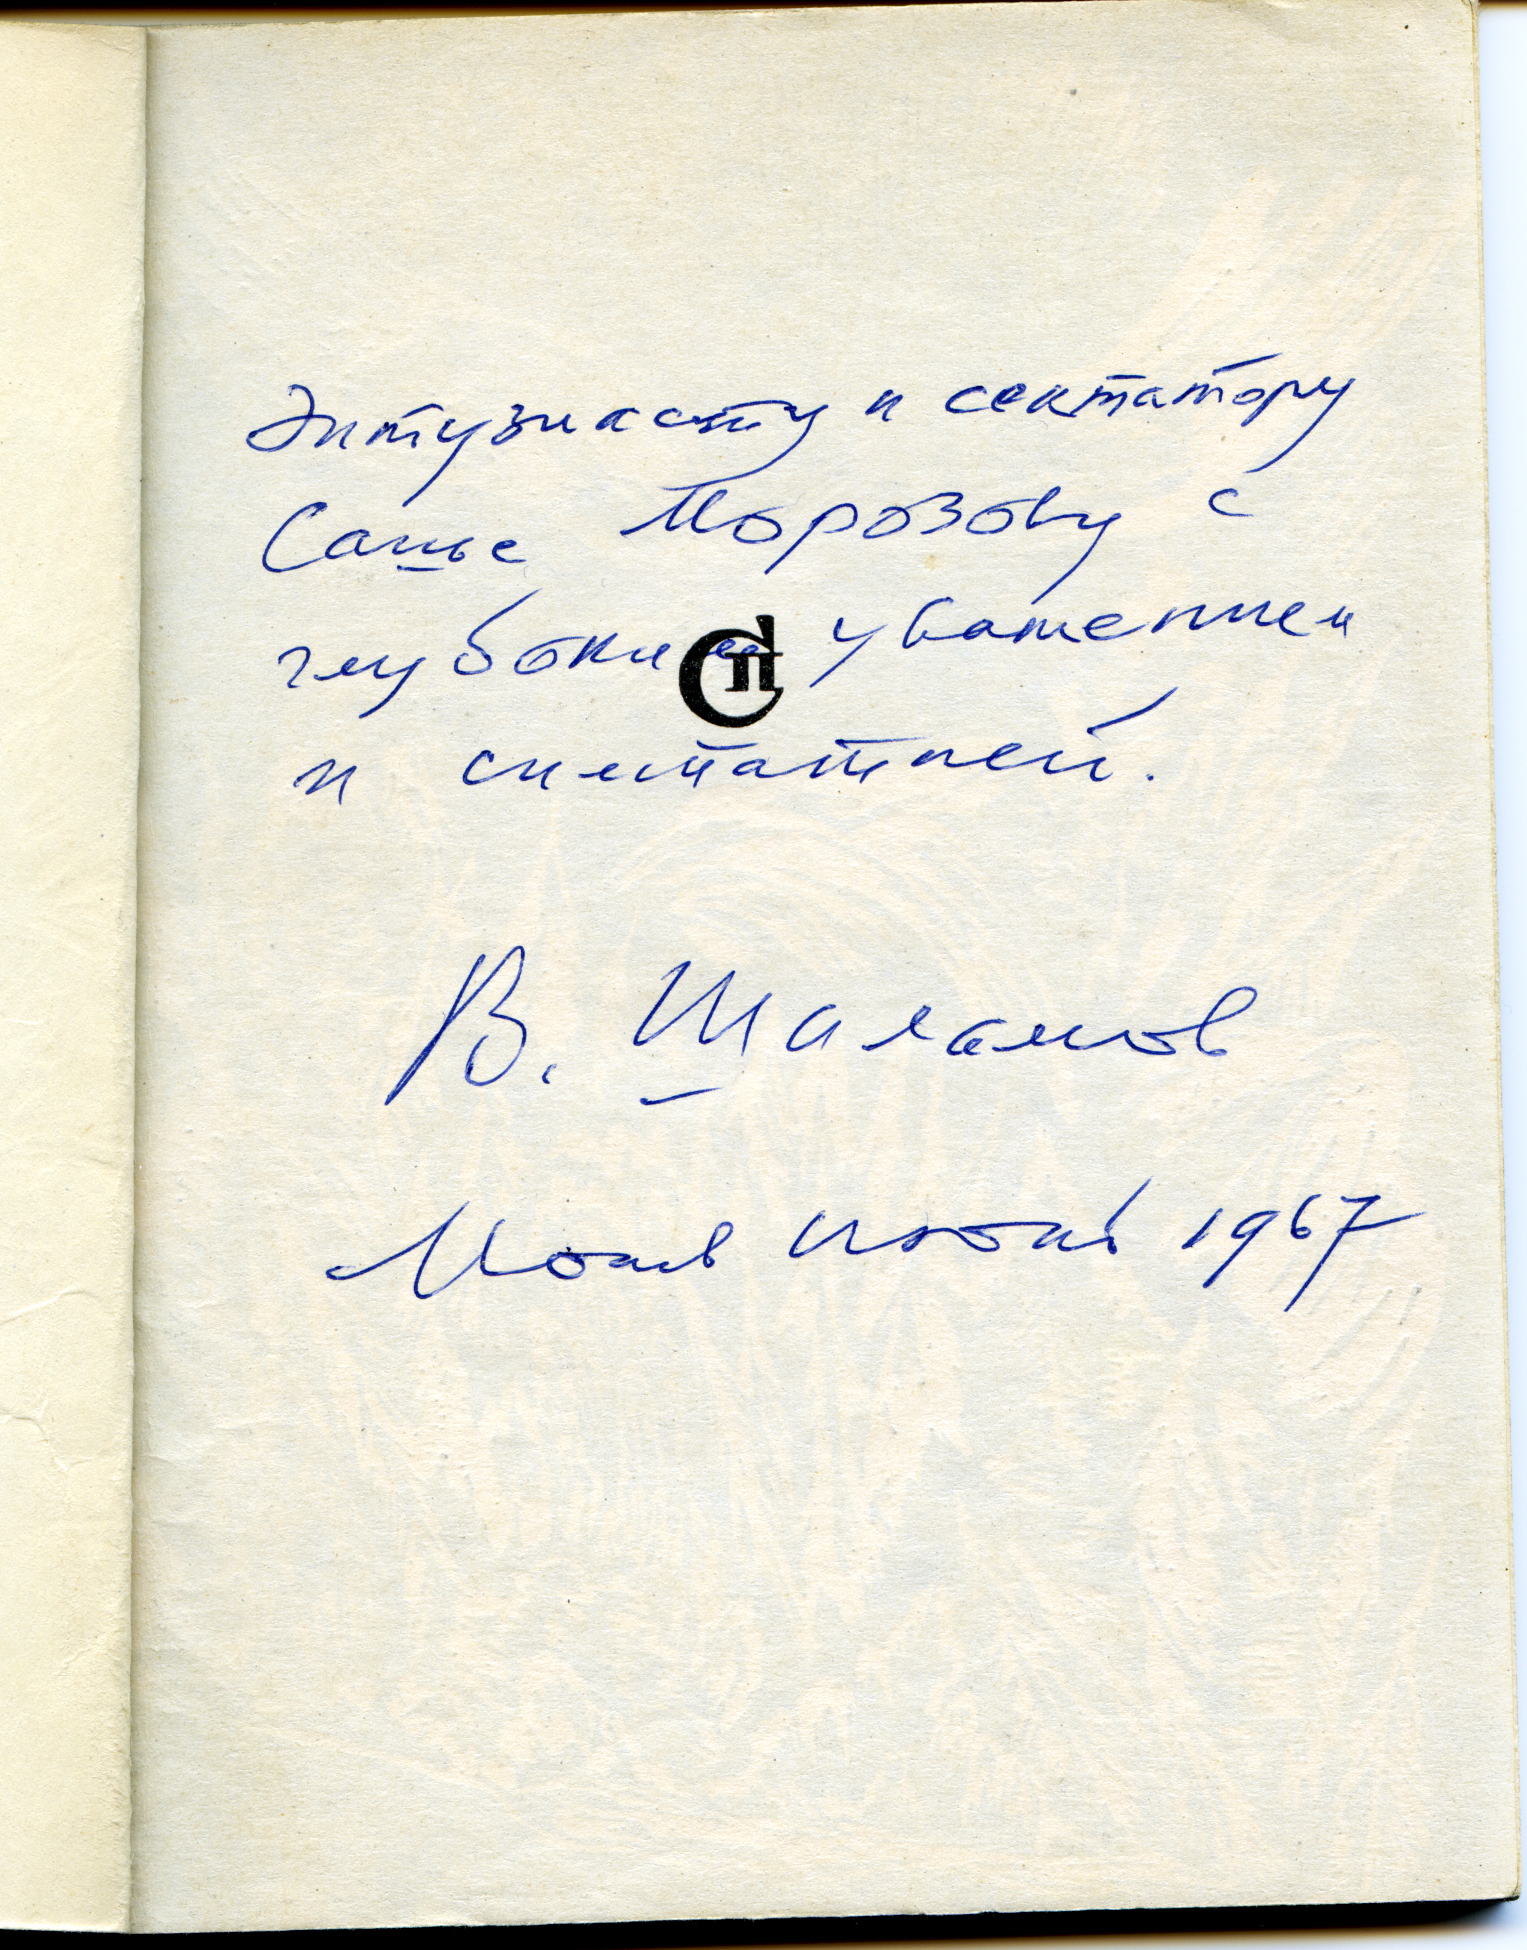 Энтузиасту и сектатору
Саше Морозову с
глубоким уважением
и симпатией.
В. Шаламов
Москва июнь 1967
СП